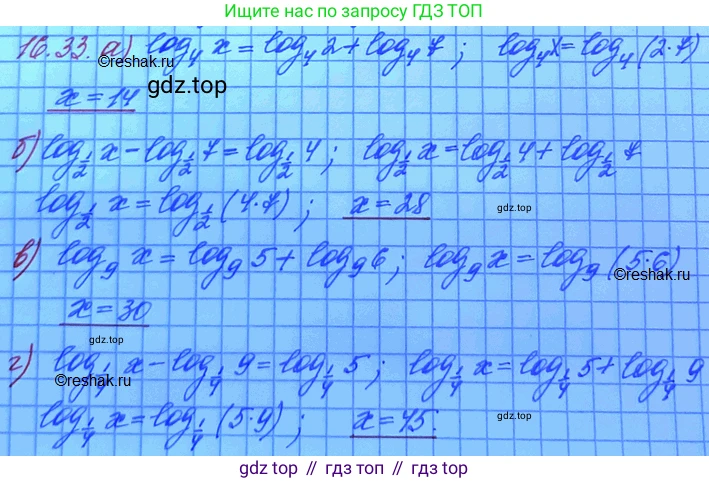 Ищите нас по запросу ГДЗ ТОП
16.33. а) log₄ x = log₄ 2 + log₄ 7 ; log₄ x = log₄ (2·7)
©reshak.ru
©reshak.ru
x = 14
gdz.top
б) log_{1/2} x − log_{1/2} 7 = log_{1/2} 4 ; log_{1/2} x = log_{1/2} 4 + log_{1/2} 7
log_{1/2} x = log_{1/2} (4·7) ; x = 28
gdz.top
в) log₉ x = log₉ 5 + log₉ 6 ; log₉ x = log₉ (5·6)
©reshak.ru
x = 30
gdz.top
г) log_{1/4} x − log_{1/4} 9 = log_{1/4} 5 ; log_{1/4} x = log_{1/4} 5 + log_{1/4} 9
©reshak.ru
log_{1/4} x = log_{1/4} (5·9) ; x = 45.
gdz.top
gdz top // гдз топ // gdz top